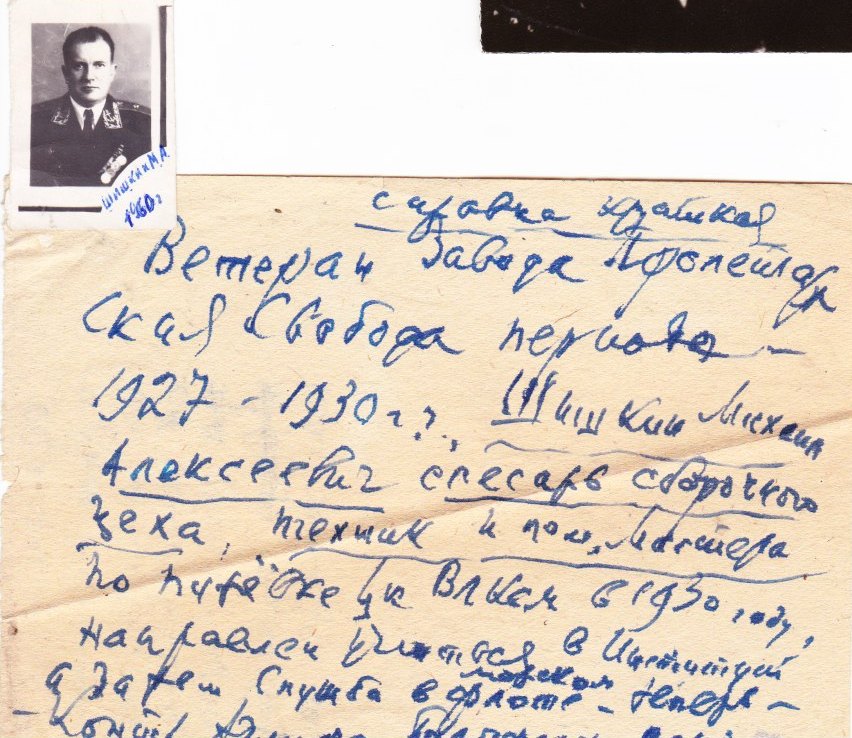 Шишкин М.А.
1960 г
справка краткая
Ветеран Завода Пролетар
ская Свобода периода –
1927 – 1930 г.г., Шишкин Михаил
Алексеевич слесарь сборочного
цеха, техник и пом. мастера
по путёвке ЦК ВЛКСМ в 1930 году,
направлен учиться в Институт
а затем служба в морском флоте – теперь –
– контр